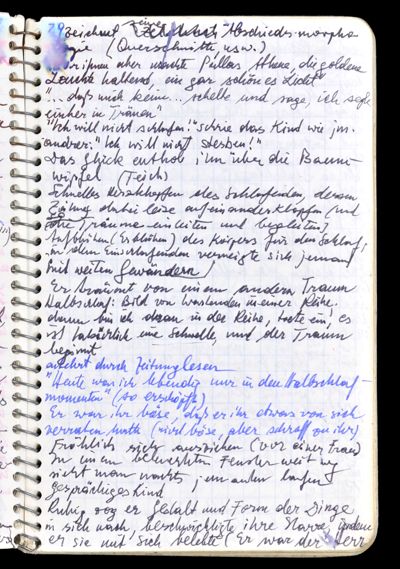 zeichnet seine Abschiedsmorpho-
gie (Querschnitte usw.)
"Vor ihnen aber machte Pallas Athene, die goldene
Leuchte haltend, ein gar schönes Licht"
"... daß mich keine ... schelte und sage, ich
einher in Tränen"
"Ich will nicht schlafen!" schrie das Kind wie jm.
anderer: "Ich will nicht sterben!"
Das Glück enthob ihn über die Baum-
wipfel (Teich)
Schnelles Herzklopfen des Schlafenden, dessen
(und
Träume einleiten und begleiten)
Aufblühen (Erblühen) des Körpers für den Schlaf;
in dem Einschlafenden verneigte sich jemand
mit weiten Gewändern
Er träumt von einem andern Traum
Halbschlaf: Bild von Wartenden in einer Reihe;
dann bin ich dran in der Reihe, trete ein, es
ist tatsächlich eine Schwelle, und der Traum
beginnt
durch Zeitunglesen
"Heute war ich lebendig nur in den Halbschlaf-
momenten" (so erschöpft)
Er war ihr böse, daß er ihr etwas von sich
verraten hatte (nicht böse, aber schroff zu ihr)
Fröhlich sich ausziehen (vor einer Frau)
In einem Fenster weit weg
sieht man nachts jm. auf und ab laufen
gesprächiges Kind
Ruhig zog er Gestalt und Form der Dinge
in sich nach, beschwichtigte ihre Starre, indem
er sie mit sich belebte (Er war der Herr